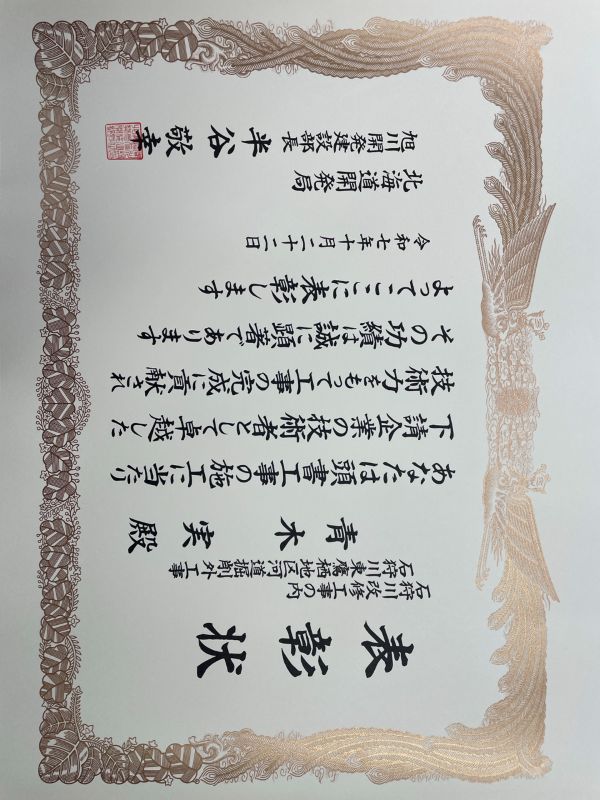 表彰状
石狩川改修工事の内
石狩川東鷹栖地区河道掘削外工事
青木実殿
あなたは頭書工事の施工に当たり
下請企業の技術者として卓越した
技術力をもって工事の完成に貢献され
その功績は誠に顕著であります
よってここに表彰します
令和七年十月二十二日
北海道開発局
旭川開発建設部長 半谷敬幸